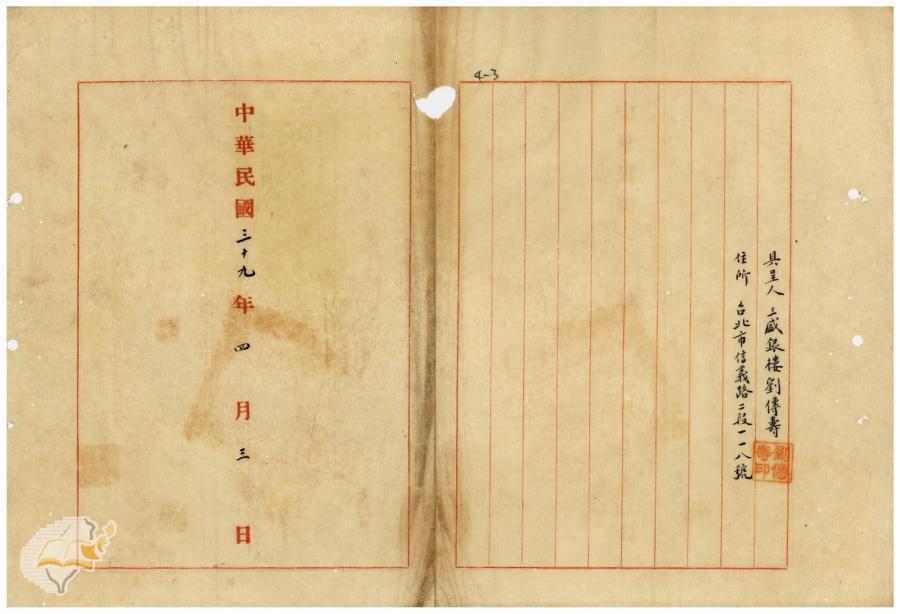 4-3
具呈人 三盛銀樓劉傳壽
住所 台北市信義路二段一一八號
劉傳壽印
中華民國三十九年四月三日